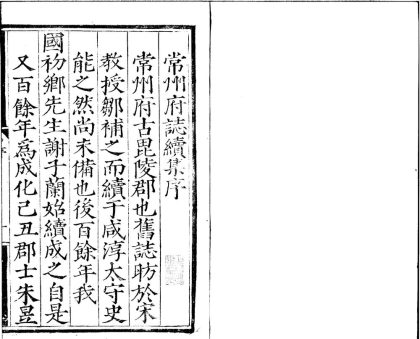 常州府誌續集序
常州府古毘陵郡也舊誌昉於宋
教授鄒補之而續于咸淳太守史
能之然尚未備也後百餘年我
國初鄉先生謝子蘭始續成之自是
又百餘年爲成化己丑郡士朱昱